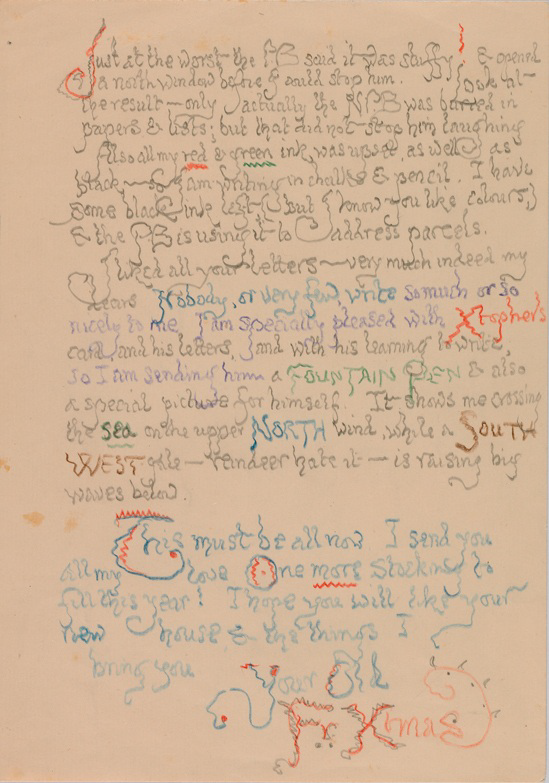 Just at the worst the PB said it was stuffy, & opened
a north window before I could stop him. Look at—
the result — only actually the NPB was buried in
papers & lists; but that did not stop him laughing
Also all my red & green ink was upset, as well as
black, — so I am writing in chalks & pencil. I have
some black ink left (but I know you like colours,)
& the PB is using it to address parcels.
I liked all your letters — very much indeed my
dears Nobody, or very few, write so much or so
nicely to me. I am specially pleased with Xtopher's
card, and his letters, and with his learning to write,
so I am sending him a FOUNTAIN PEN & also
a special picture for himself. It shows me crossing
the sea on the upper NORTH wind, while a SOUTH
WEST gale — reindeer hate it — is raising big
waves below.
This must be all now I send you
all my love One more stocking to
fill this year! I hope you will like your
new house & the things I
bring you
Your Old
Fr Xmas